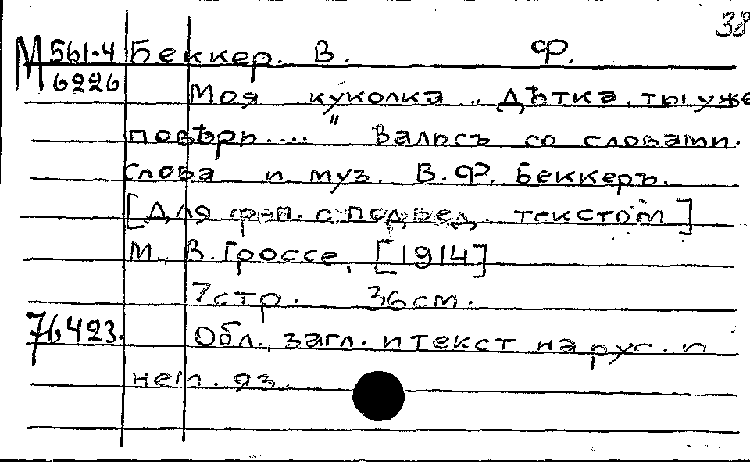 38
М 561-4 Беккер. В. Ф.
6226
Моя куколка „Дѣтка, ты уже
повѣрь...." Вальсъ со словами.
Слова и муз. В.Ф. Беккеръ.
[Для фп. с подвед. текстом]
М. В. Гроссе, [1914]
7 стр. 36 см.
76423. Обл., загл. и текст на рус. и
нем. яз.